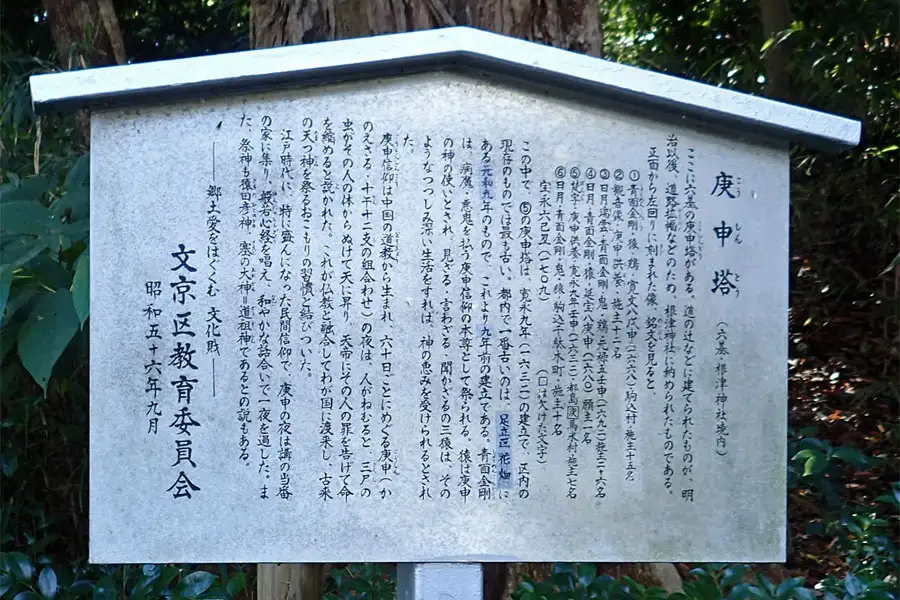 庚申塔 (六基・根津神社境内)
ここに六基の庚申塔がある。道の辻などに建てられたものが、明
治以後、道路拡幅などのため、根津神社に納められたものである。
正面から左回りに刻まれた像、銘文を見ると
①青面金剛・猿・鶏・寛文八戊申(一六六八)駒込村・施主十五名
②観音像・庚申供養・施主十二名
③日月瑞雲・青面金剛・鬼・鶏・元禄五壬申(一六九二)施主二十六名
④日月・青面金剛・猿・延宝八庚申(一六八〇)願主一名
⑤梵字・庚申供養・寛永九壬申(一六三二)都島 馬木村・施主七名
⑥日月・青面金剛・鬼・猿・駒込千駄木町・施主十名
宝永六己丑(一七〇九) (□は欠けた文字)
この中で、⑤の庚申塔は、寛永九年(一六三二)の建立で、区内の
現存のものでは最も古い。都内で一番古いのは、足立区花畑に
ある元和九年のもので、これより九年前の建立である。青面金剛
は、病魔・悪鬼を払う庚申信仰の本尊として祭られる。猿は庚申
の神の使いとされ、見ざる・言わざる・聞かざるの三猿は、その
ようなつつしみ深い生活をすれば、神の恵みを受けられるとされ
た。
庚申信仰は中国の道教から生まれ、六十日ごとにめぐる庚申(か
のえさる・十干十二支の組合わせ)の夜は、人がねむると、三尸の
虫がその人の体からぬけて天に昇り、天帝にその人の罪を告げて命
を縮めると説かれた。これが仏教と融合してわが国に渡来し、古来
の天つ神を祭るおこもりの習慣と結びついた。
江戸時代に、特に盛んになった民間信仰で、庚申の夜は講の当番
の家に集り、般若心経を唱え、和やかな話合いで一夜を過した。ま
た、祭神も猿田彦神、塞の大神=道祖神であるとの説もある。
――郷土愛をはぐくむ文化財――
文京区教育委員会
昭和五十六年九月